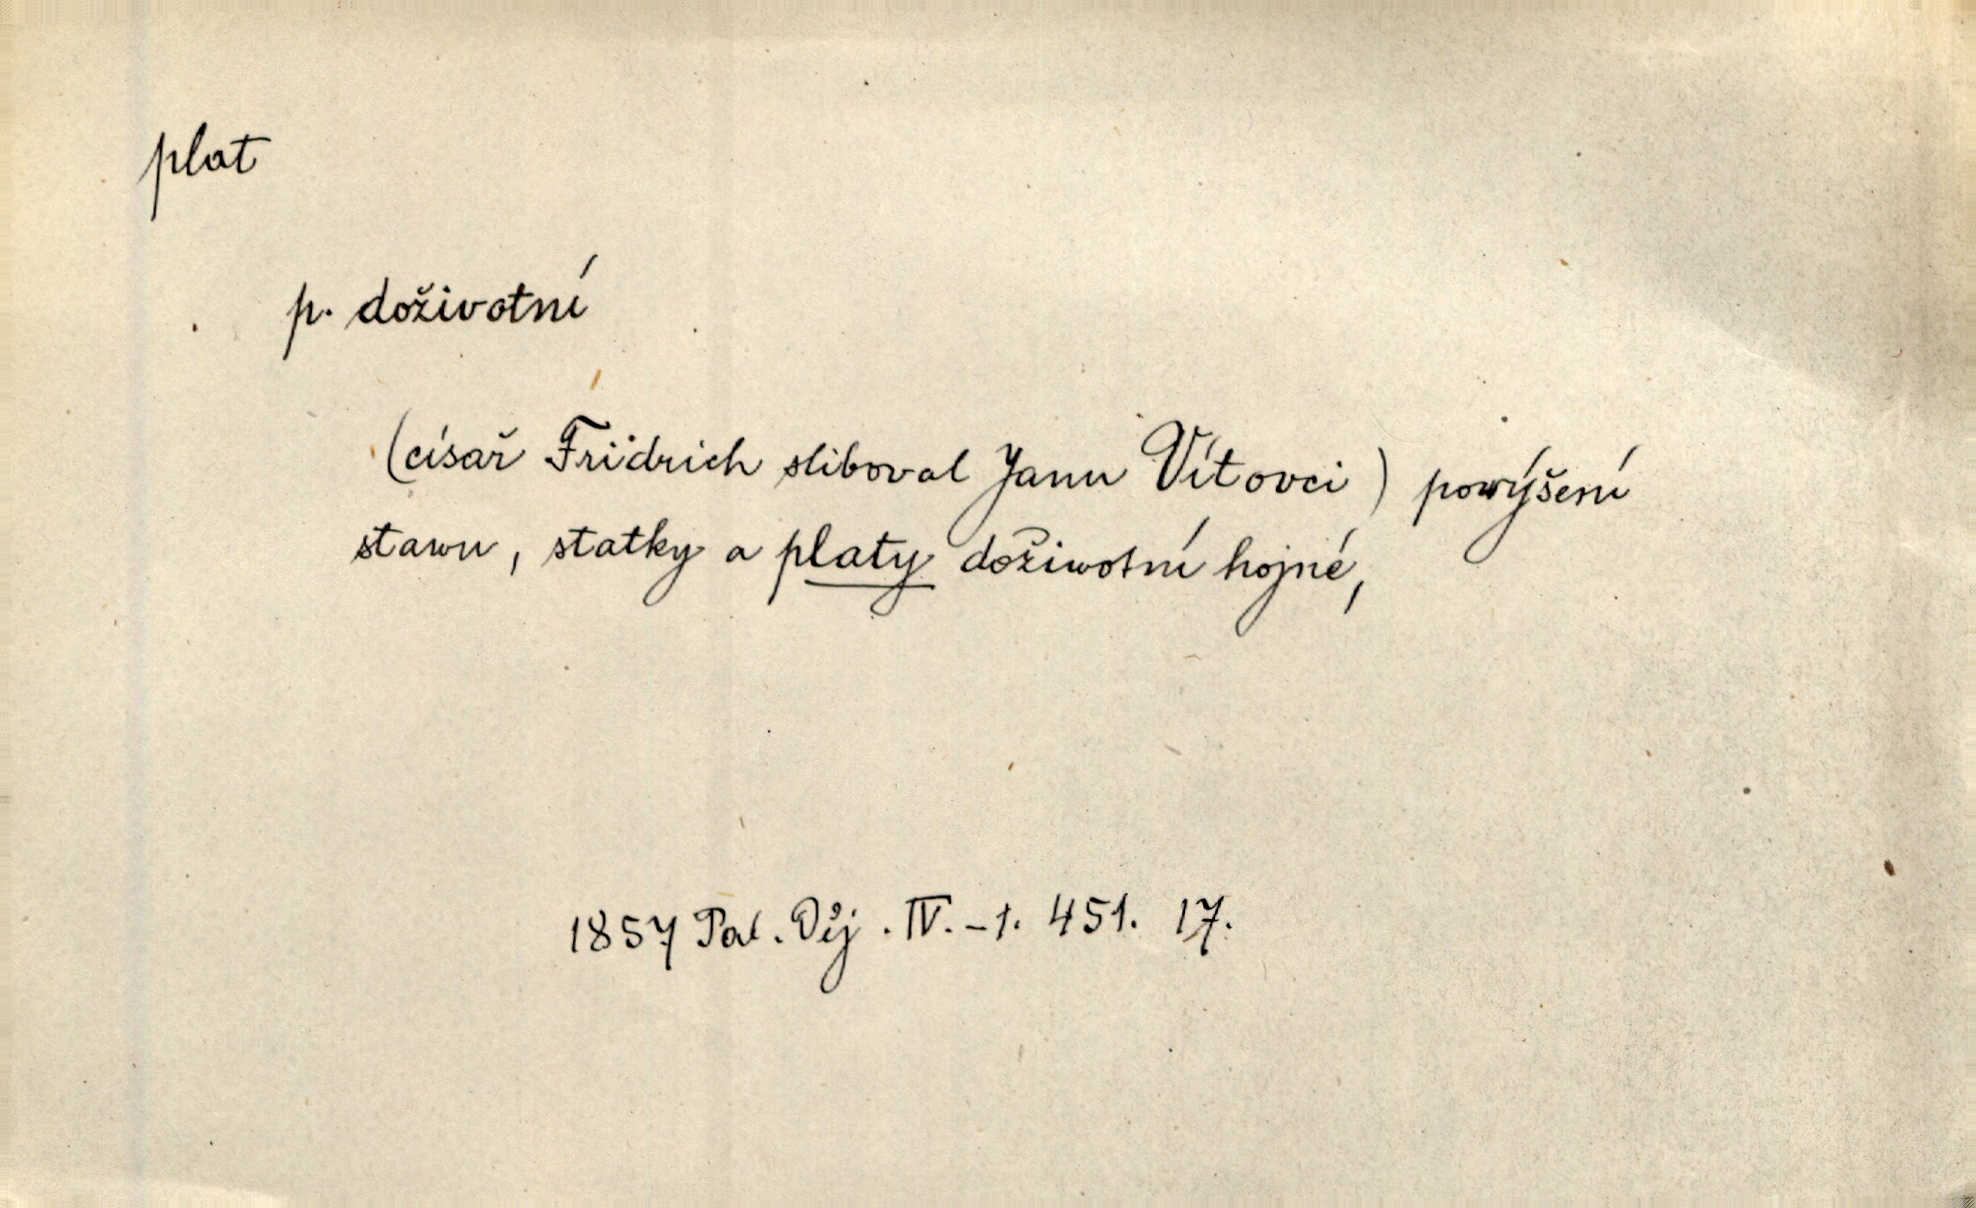 plat
p. doživotní
(císař Fridrich sliboval Janu Vítovci) powýšení
stawu, statky a platy doživotní hojné,
1857 Pal. Děj. IV.-1. 451. 17.